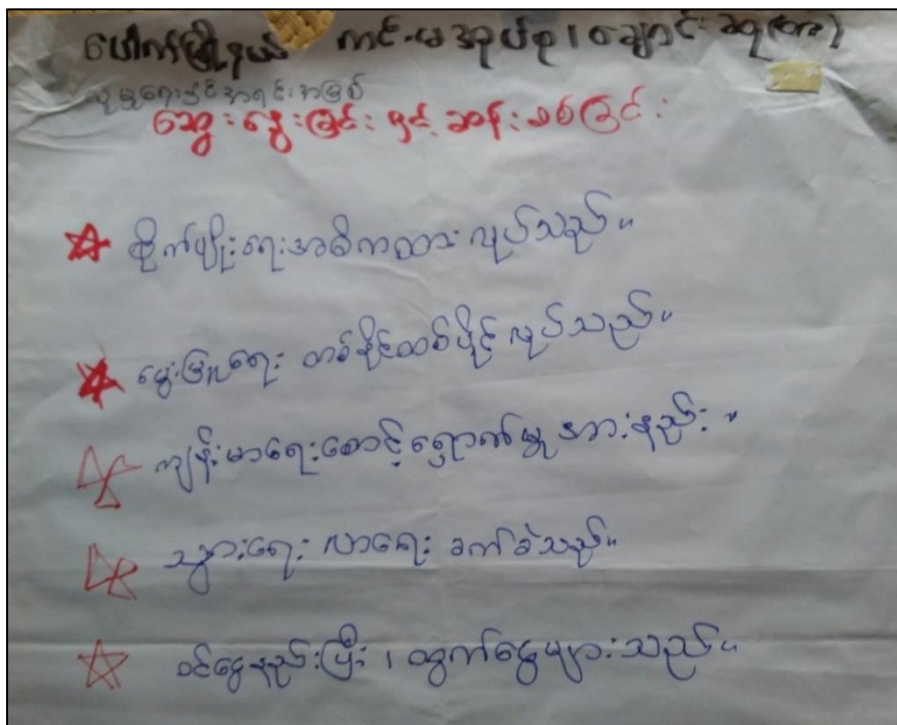 ပေါက်မြို့နယ် ကင်းမအုပ်စု၊ ချောင်းဆူ(
လူမှုရေးနှင့်အရင်းအမြစ်
ဆွေးနွေးခြင်းနှင့် ဆန်းစစ်ခြင်း
စိုက်ပျိုးရေးအဓိကထား လုပ်သည်။
မွေးမြူရေး တစ်နိုင်တစ်ပိုင် လုပ်သည်။
ကျန်းမာရေးစောင့်ရှောက်မှု အားနည်း။
သွားရေး လာရေး ခက်ခဲသည်။
ဝင်ငွေနည်းပြီး ၊ ထွက်ငွေများသည်။